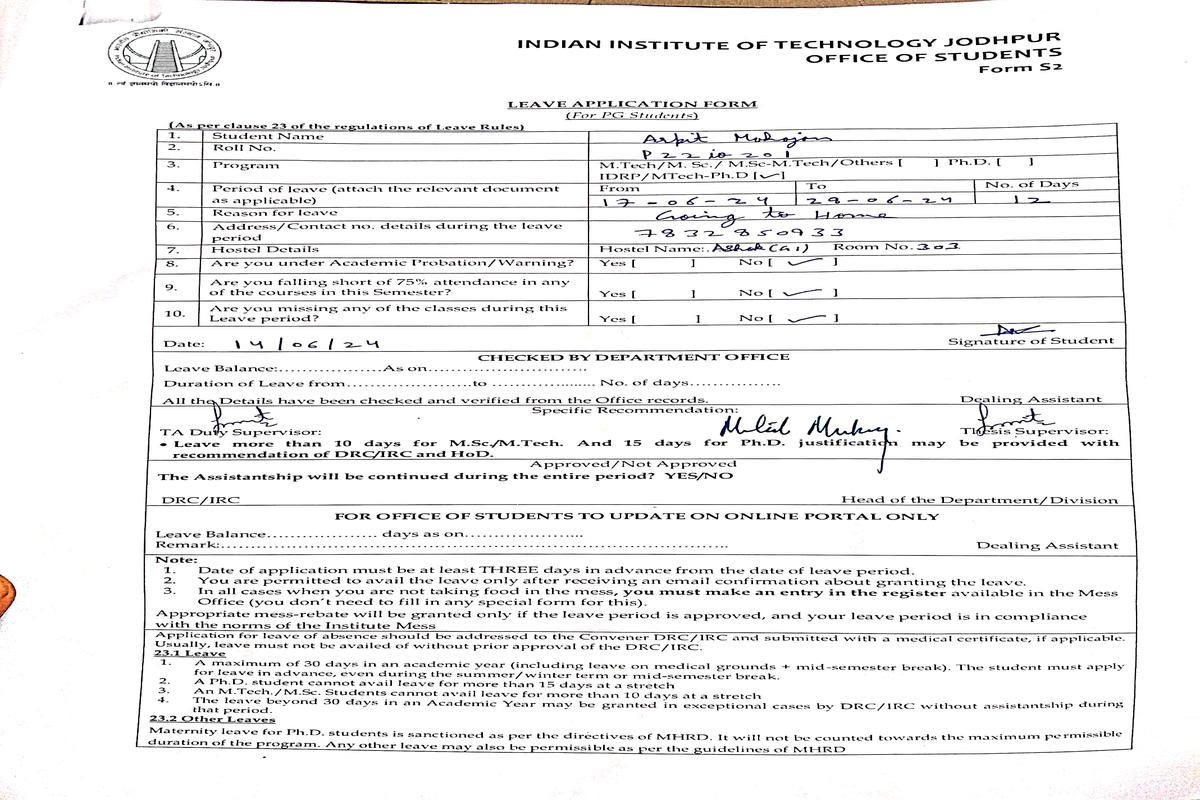 INDIAN INSTITUTE OF TECHNOLOGY JODHPUR
OFFICE OF STUDENTS
Form S2
॥ त्वं ज्ञानमयो विज्ञानमयोऽसि ॥
LEAVE APPLICATION FORM
(For PG Students)
(As per clause 23 of the regulations of Leave Rules)
1. Student Name Arpit Mahajan
2. Roll No. P22io201
3. Program M.Tech/M. Sc./ M.Sc-M.Tech/Others [ ] Ph.D. [ ]
IDRP/MTech-Ph.D [✓]
4. Period of leave (attach the relevant document as applicable) From To No. of Days
17-06-24 28-06-24 12
5. Reason for leave Going to Home
6. Address/Contact no. details during the leave period 7832850933
7. Hostel Details Hostel Name: Ashok(G1) Room No. 303
8. Are you under Academic Probation/Warning? Yes [ ] No [ ✓ ]
9. Are you falling short of 75% attendance in any of the courses in this Semester? Yes [ ] No [ ✓ ]
10. Are you missing any of the classes during this Leave period? Yes [ ] No [ ✓ ]
Date: 14/06/24 Signature of Student
CHECKED BY DEPARTMENT OFFICE
Leave Balance:.................As on..........................
Duration of Leave from....................to ................. No. of days...............
All the Details have been checked and verified from the Office records. Dealing Assistant
Specific Recommendation:
TA Duty Supervisor: Thesis Supervisor:
• Leave more than 10 days for M.Sc/M.Tech. And 15 days for Ph.D. justification may be provided with
recommendation of DRC/IRC and HoD.
Approved/Not Approved
The Assistantship will be continued during the entire period? YES/NO
DRC/IRC Head of the Department/Division
FOR OFFICE OF STUDENTS TO UPDATE ON ONLINE PORTAL ONLY
Leave Balance.................. days as on...................
Remark:.................................................................................. Dealing Assistant
Note:
1. Date of application must be at least THREE days in advance from the date of leave period.
2. You are permitted to avail the leave only after receiving an email confirmation about granting the leave.
3. In all cases when you are not taking food in the mess, you must make an entry in the register available in the Mess
Office (you don't need to fill in any special form for this).
Appropriate mess-rebate will be granted only if the leave period is approved, and your leave period is in compliance
with the norms of the Institute Mess
Application for leave of absence should be addressed to the Convener DRC/IRC and submitted with a medical certificate, if applicable.
Usually, leave must not be availed of without prior approval of the DRC/IRC.
23.1 Leave
1. A maximum of 30 days in an academic year (including leave on medical grounds + mid-semester break). The student must apply
for leave in advance, even during the summer/winter term or mid-semester break.
2. A Ph.D. student cannot avail leave for more than 15 days at a stretch
3. An M.Tech./M.Sc. Students cannot avail leave for more than 10 days at a stretch
4. The leave beyond 30 days in an Academic Year may be granted in exceptional cases by DRC/IRC without assistantship during
that period.
23.2 Other Leaves
Maternity leave for Ph.D. students is sanctioned as per the directives of MHRD. It will not be counted towards the maximum permissible
duration of the program. Any other leave may also be permissible as per the guidelines of MHRD